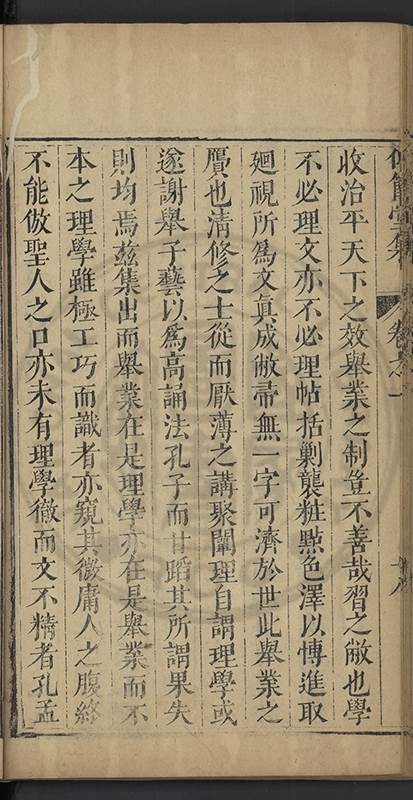 收治平天下之效舉業之制豈不善哉習之敝也學
不必理文亦不必理帖括剿襲粧㸃色澤以慱進取
廻視所爲文真成敝帚無一字可濟於世此舉業之
贗也清修之士從而厭薄之講聚闡理自謂理學或
遂謝舉子藝以爲高誦法孔子而甘蹈其所謂果失
則均焉兹集出而舉業在是理學亦在是舉業而不
本之理學雖極工巧而識者亦窺其微庸人之腹終
不能倣聖人之口亦未有理學徹而文不精者孔孟